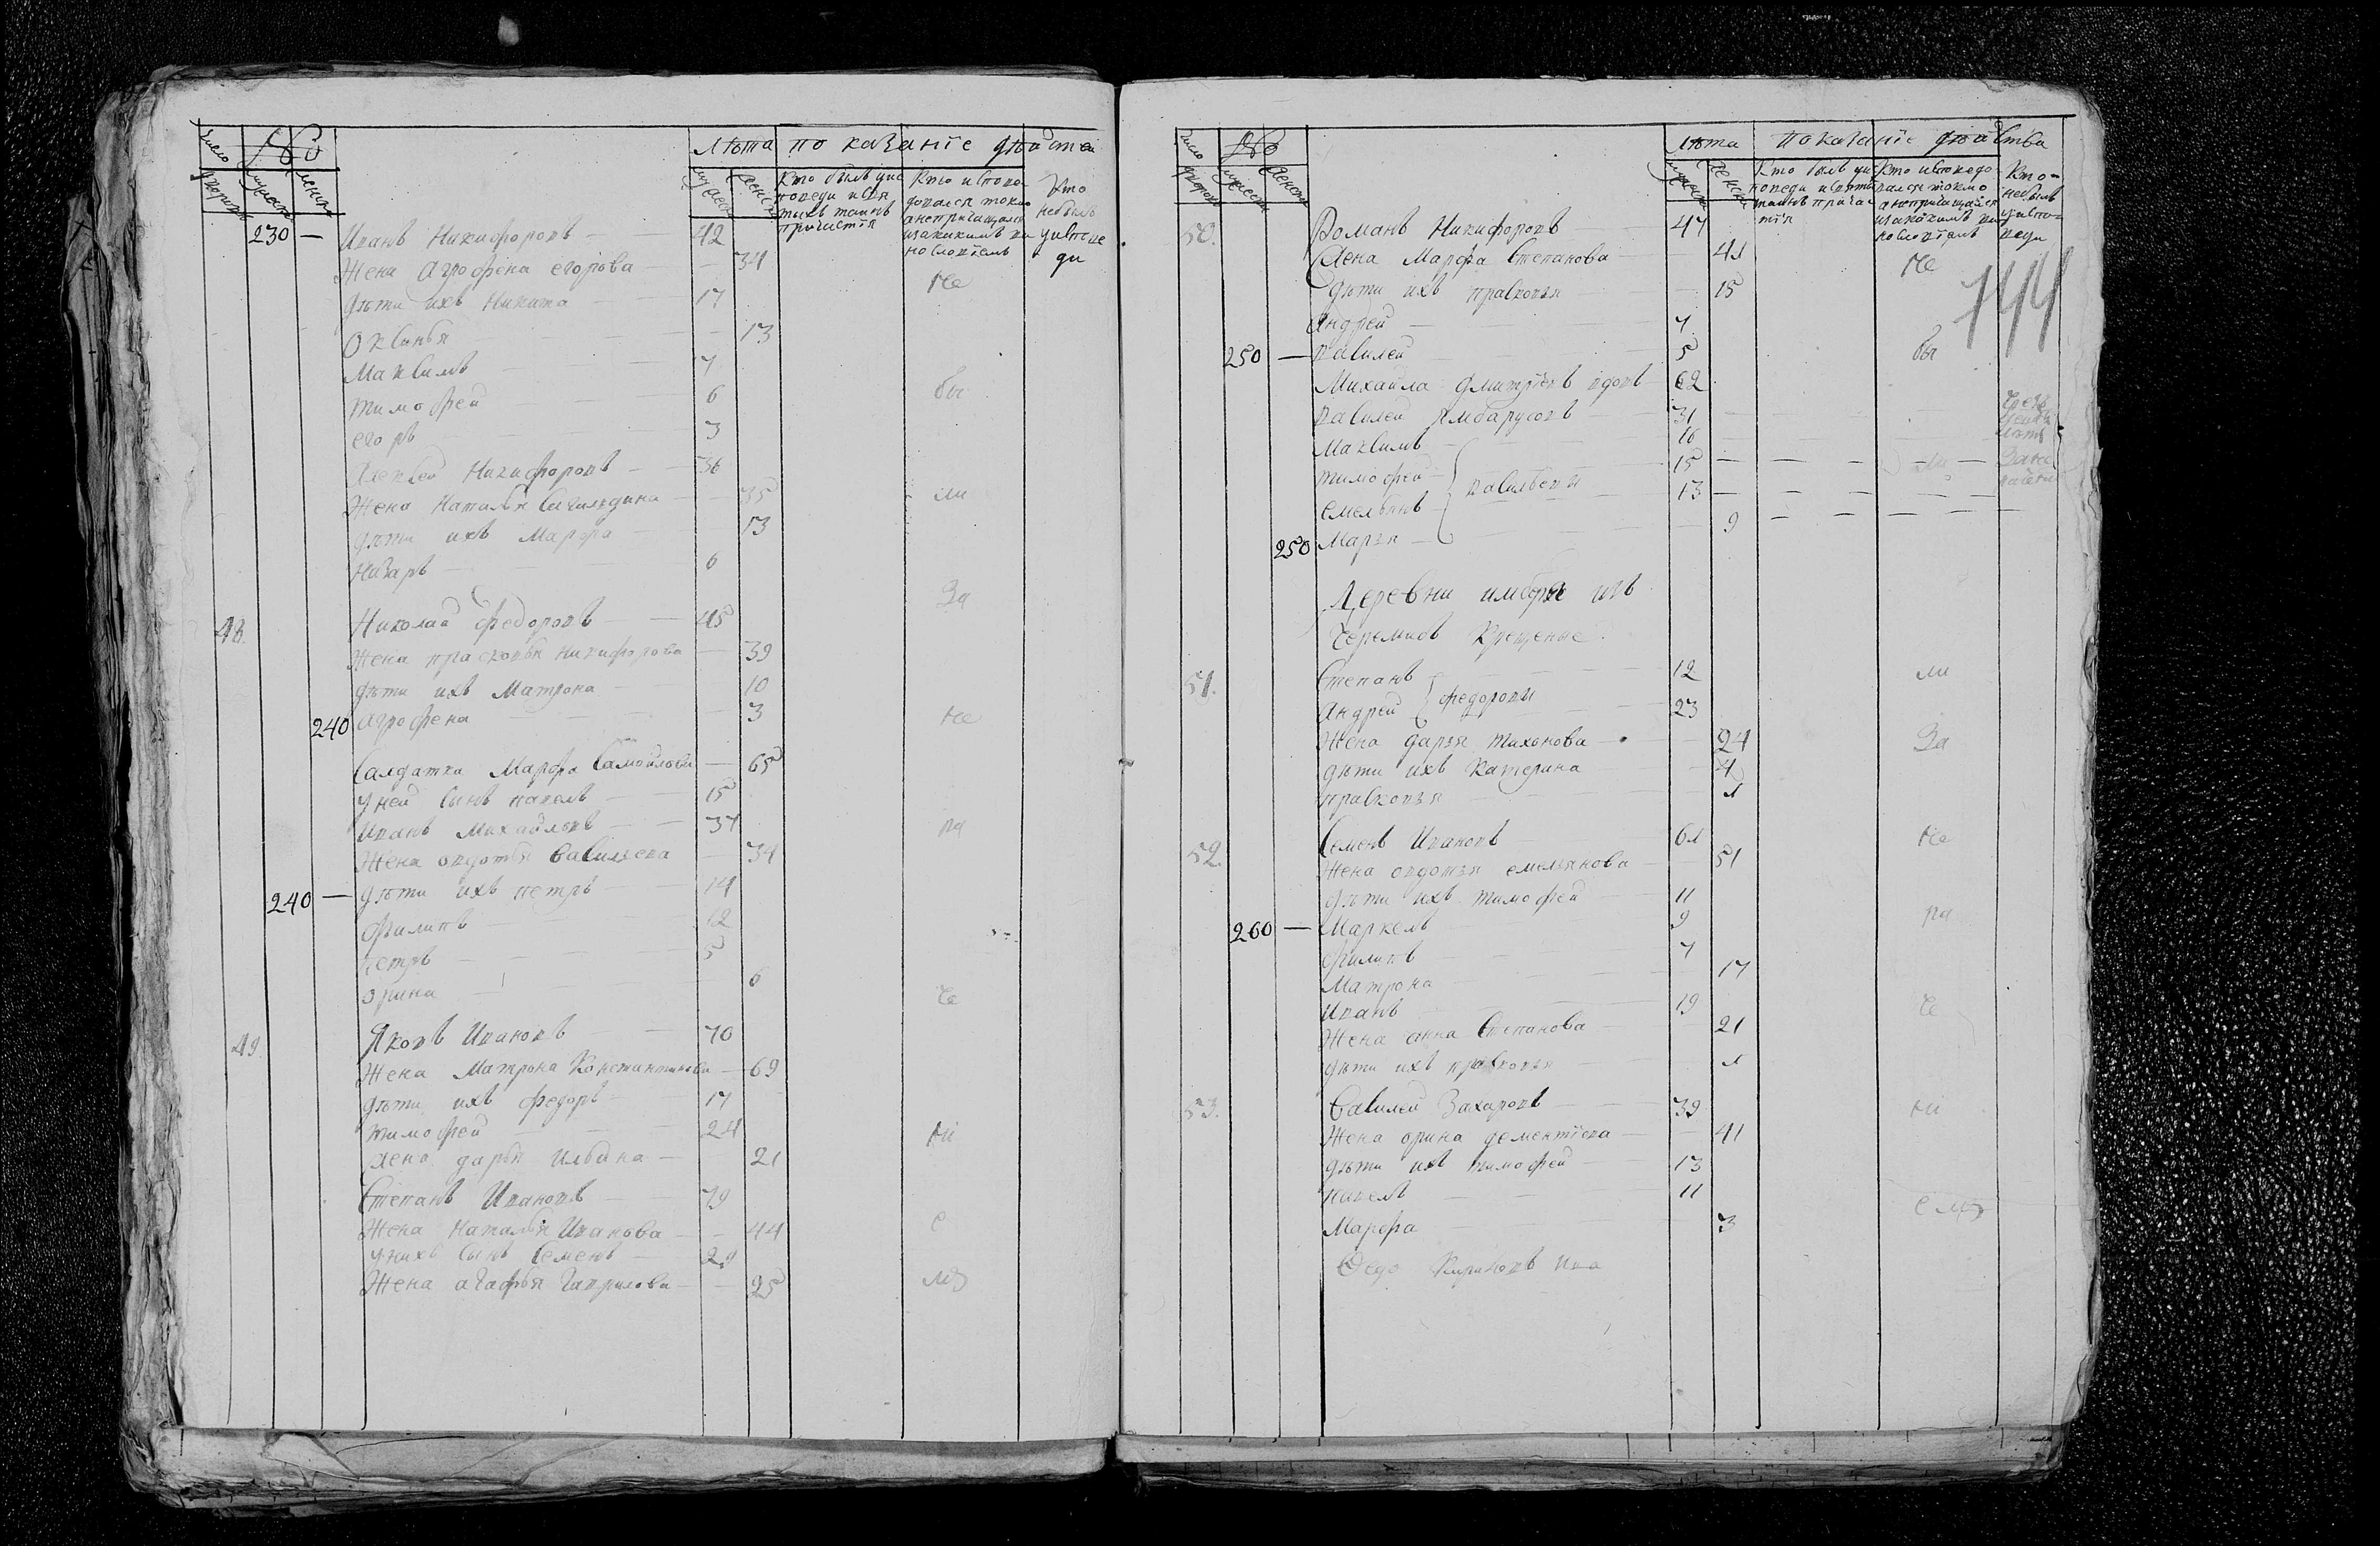 Число дворовъ мужеска женска Лѣта показанїе дѣйства
мужеска женска
Кто былъ у исповеди и святыхъ таинъ причастія
Кто исповедовался токмо а непричащался и за какимъ винословїемъ
Кто небылъ у исповеди
230 — Иванъ Никифоровъ — 42
Жена Агрофена егорова — 34
дѣти ихъ Никита — 17 не
Оксинья — 13
Максимъ — 7
тимофей — 6 бы
егоръ — 3
Алексей Никифоровъ — 36
Жена Наталья — 35 ли
дѣти ихъ Марфа — 13
Назаръ — 6
За
48. Николай федоровъ — 45
Жена прасковья никифорова — 39
дѣти ихъ Матрона — 10
240 агрофена — 3 не
Салдатка Марфа Самойлова — 65
у ней сынъ павелъ — 15
Иванъ Михайловъ — 37 ра
Жена овдотья васильева — 34
240 — дѣти ихъ петръ — 14
филипъ — 12
петръ — 5
орина — 6
че
49. Яковъ Ивановъ — 70
Жена Матрона Константинова — 69
дѣти ихъ федоръ — 17
тимофей — 24 нї
Жена дарья ильина — 21
Степанъ Ивановъ — 79
Жена Наталья Иванова — 44 е
у нихъ сынъ Семенъ — 29
Жена агафья гаврилова — 25 мъ
Число дворовъ мужеска женска лѣта показанїе дѣйства
мужеска женска
Кто былъ у исповеди и святы таинъ причастїя
Кто исповедовался токмо а непричащался и за какимъ винословїемъ
Кто небылъ у исповеди
144
50. Романъ Никифоровъ — 47
Жена Марфа Степанова — 41 не
дѣти ихъ прасковья — 15
Андрей — 7
250 — василей — 5 бы
Михайла дмитрїевъ вдовъ — 62
василей — 31
Максимъ — 16
тимофей — васильевы — 15 ли
емельянъ — 13
250 Марья — 9
Деревни из
черемисъ Крещеные
51. Степанъ — 12 ли
Андрей федоровы — 23
Жена дарья тихонова — 24 За
дѣти ихъ Катерина — 4
прасковья — 1
52. Семенъ Ивановъ — 61 не
Жена овдотья емельянова — 51
дѣти ихъ тимофей — 11
260 — Маркелъ — 9 ра
филипъ — 7
Матрона — 17
Иванъ — 19 че
Жена анна Степанова — 21
дѣти ихъ прасковья — 1
53. василей Захаровъ — 39 нї
Жена орина дементїева — 41
дѣти ихъ тимофей — 13
павелъ — 11
Марфа — 3 емъ